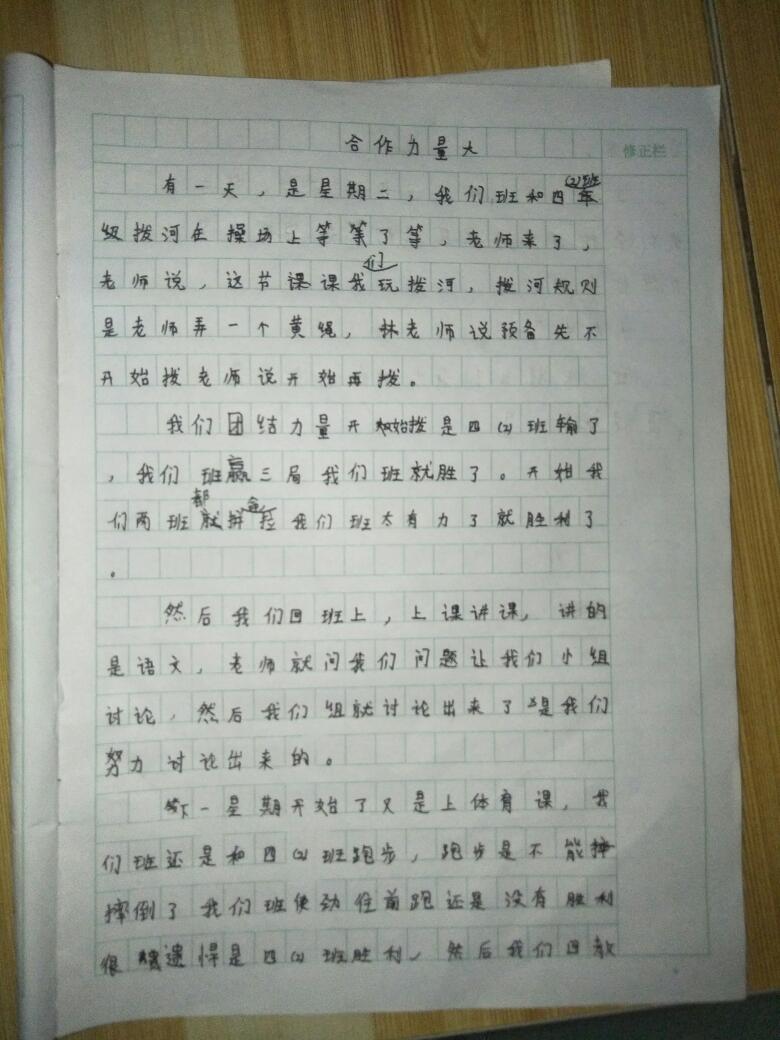 合作力量大
修正栏
有一天，是星期二，我们班和四(2)班
级拨河在操场上等等了等，老师来了，
老师说，这节课课我们玩拨河，拨河规则
是老师弄一个黄绳，林老师说预备先不
开始拨老师说开始再拨。
我们团结力量开始拨是四(2)班输了
，我们班赢三局我们班就胜了。开始我
们两班都拼命拉我们班太有力了就胜利了
。
然后我们回班上，上课讲课，讲的
是语文，老师就问我们问题让我们小组
讨论，然后我们组就讨论出来了是我们
努力讨论出来的。
下一星期开始了又是上体育课，我
们班还是和四(2)班跑步，跑步是不能摔
摔倒了我们班使劲往前跑还是没有胜利
很遗悍是四(2)班胜利，然后我们回教